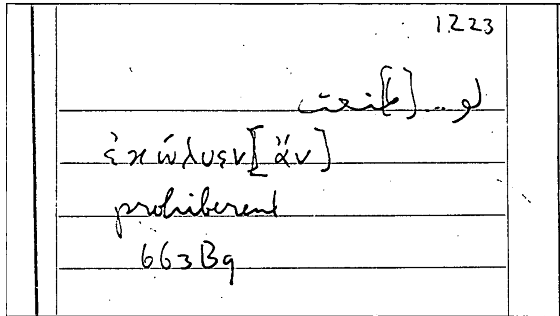 1223
لو...[لـ]منعت
ἐκώλυεν[ἄν]
prohiberent
663B9